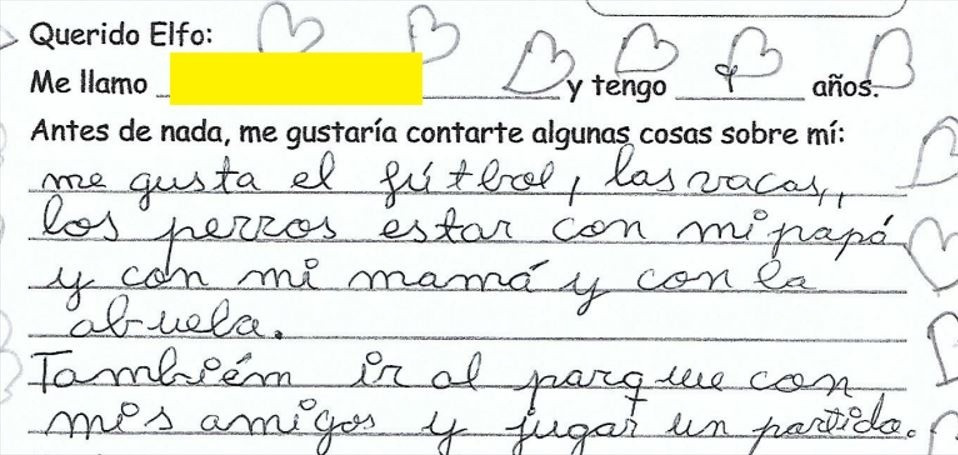 Querido Elfo:
Me llamo y tengo 9 años.
Antes de nada, me gustaría contarte algunas cosas sobre mí:
me gusta el fútbol, las vacas,,
los perros estar con mi papá
y con mi mamá y con la
abuela.
También ir al parque con
mis amigos y jugar un partido.